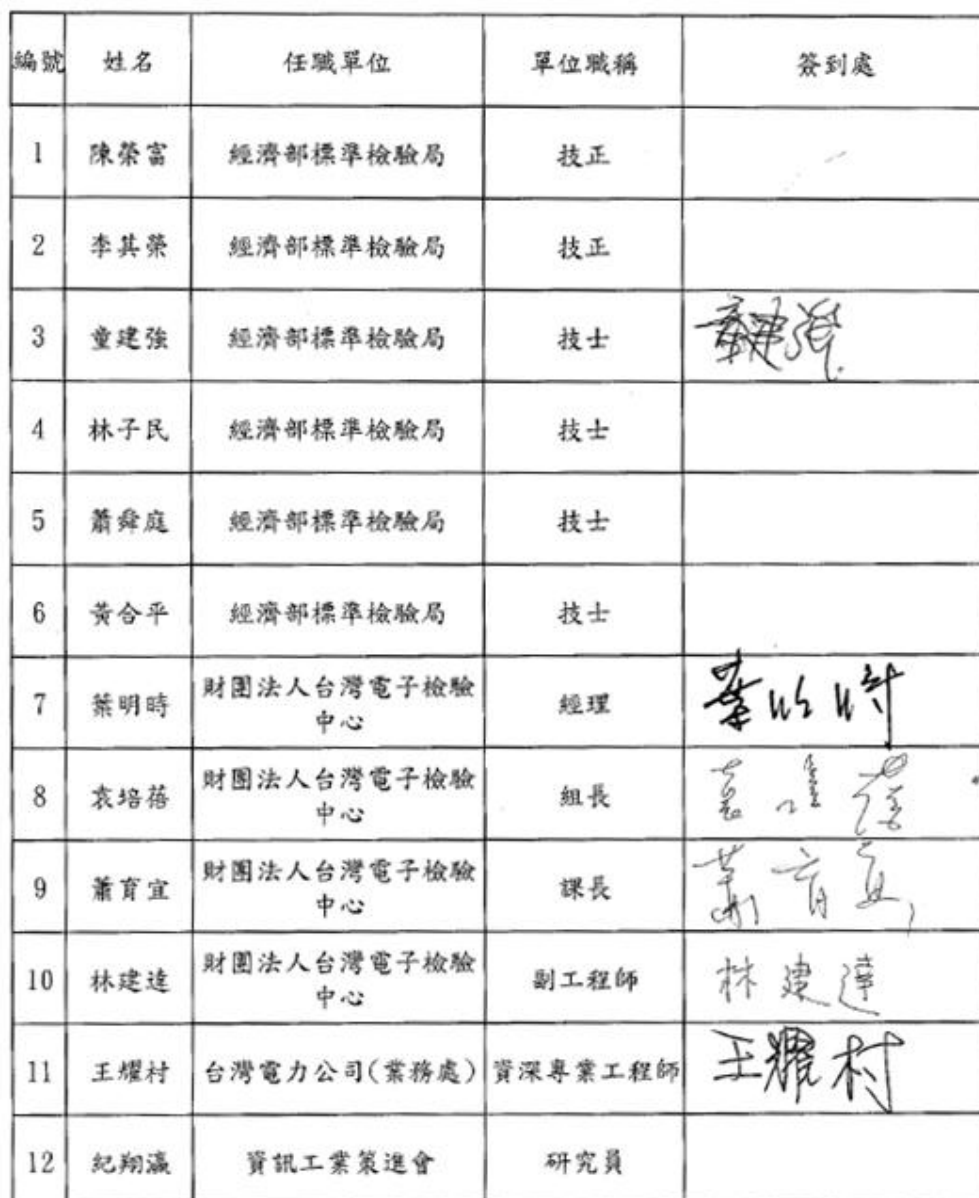 編號 姓名 任職單位 單位職稱 簽到處
1 陳榮富 經濟部標準檢驗局 技正
2 李其榮 經濟部標準檢驗局 技正
3 童建強 經濟部標準檢驗局 技士 童建強
4 林子民 經濟部標準檢驗局 技士
5 蕭舜庭 經濟部標準檢驗局 技士
6 黃合平 經濟部標準檢驗局 技士
7 葉明時 財團法人台灣電子檢驗 經理 葉明時
中心
8 袁培蓓 財團法人台灣電子檢驗 組長 袁培蓓
中心
9 蕭育宜 財團法人台灣電子檢驗 課長 蕭育宜
中心
10 林建達 財團法人台灣電子檢驗 副工程師 林建達
中心
11 王耀村 台灣電力公司(業務處) 資深專業工程師 王耀村
12 紀翔瀛 資訊工業策進會 研究員